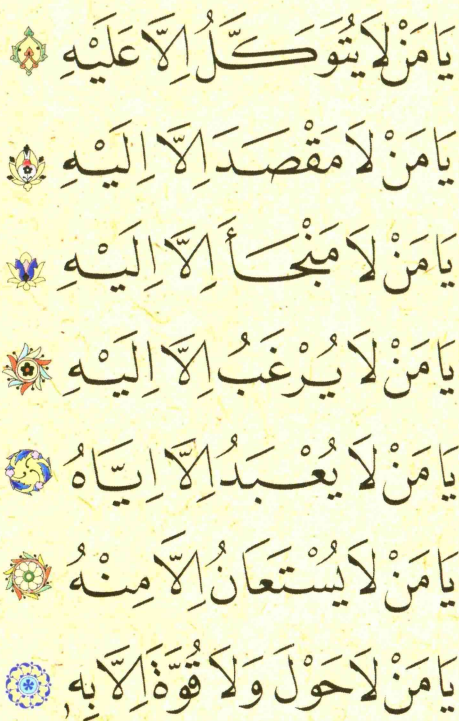 يَا مَنْ لَا يُتَوَكَّلُ اِلَّا عَلَيْهِ
يَا مَنْ لَا مَقْصَدَ اِلَّا اِلَيْهِ
يَا مَنْ لَا مَنْجَأَ اِلَّا اِلَيْهِ
يَا مَنْ لَا يُرْغَبُ اِلَّا اِلَيْهِ
يَا مَنْ لَا يُعْبَدُ اِلَّا اِيَّاهُ
يَا مَنْ لَا يُسْتَعَانُ اِلَّا مِنْهُ
يَا مَنْ لَا حَوْلَ وَلَا قُوَّةَ اِلَّا بِهِ